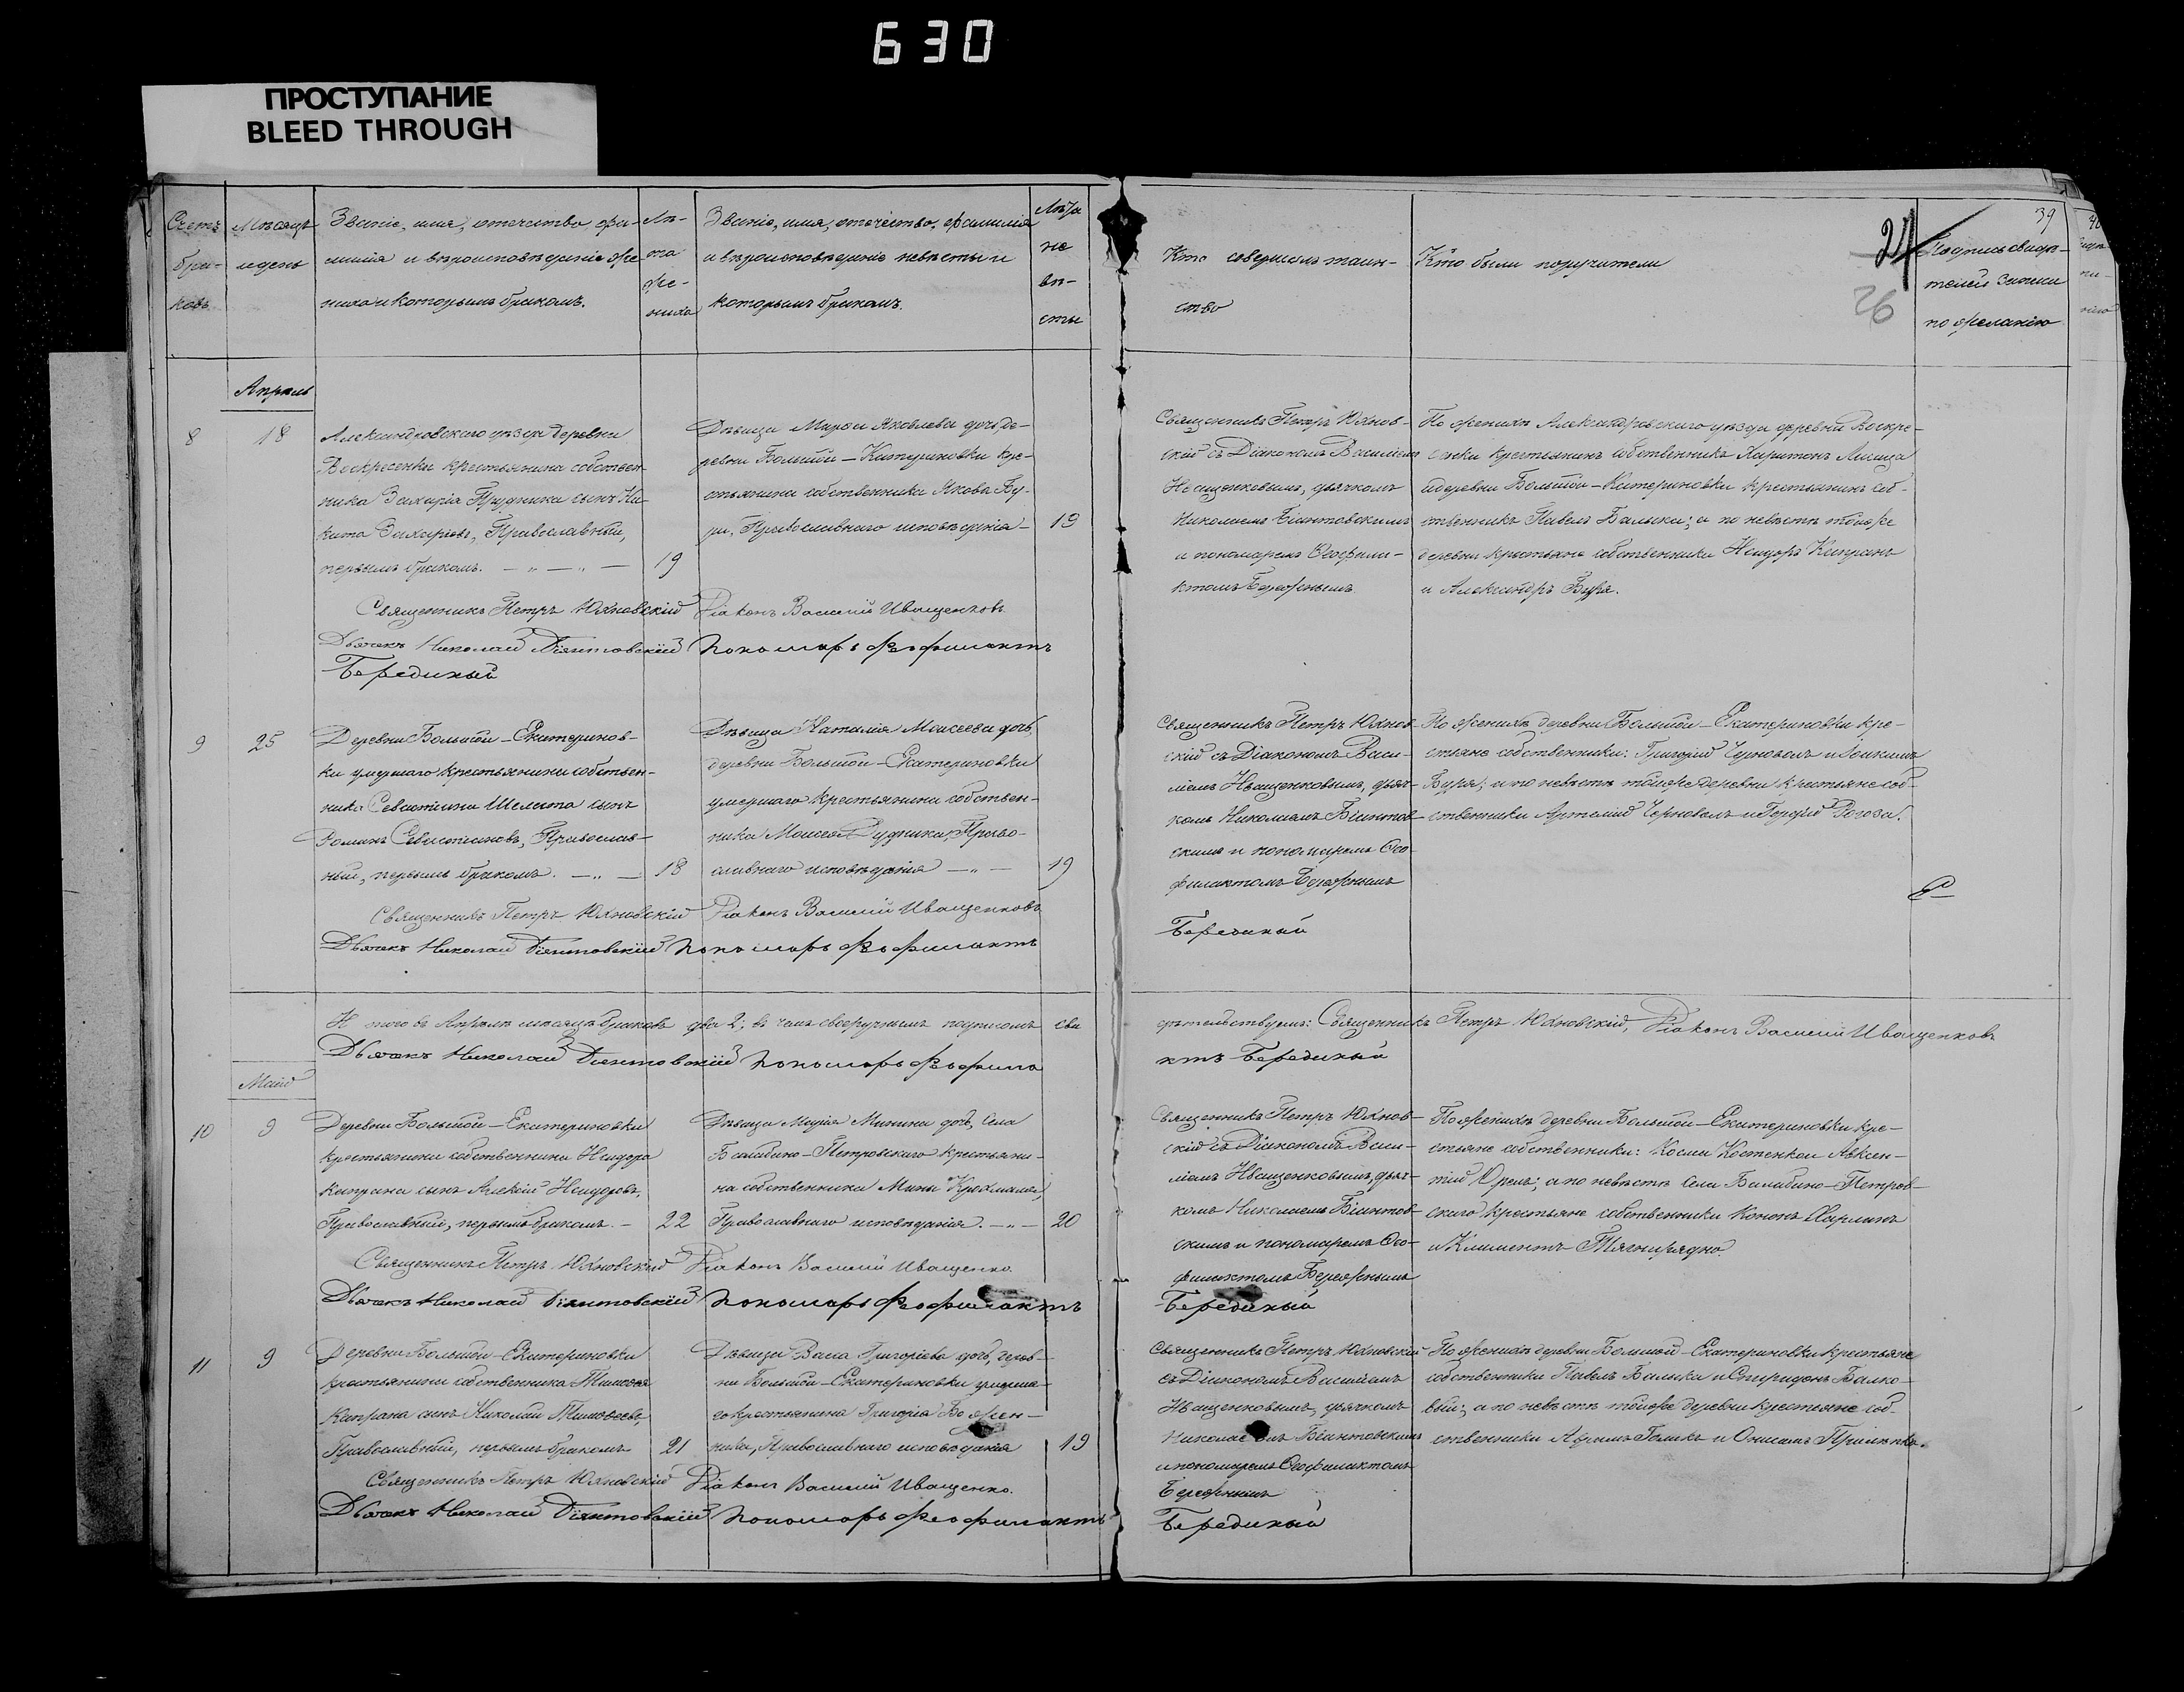 630
ПРОСТУПАНИЕ
BLEED THROUGH
Счетъ
бра-
ковъ.
Мѣсяцъ
и день
Званіе, имя, отечество, фа-
милія и вѣроисповѣданіе же
ниха и которымъ бракомъ.
Лѣ-
та
же-
ниха
Званіе, имя, отечество, фамилія
и вѣроисповѣданіе невѣсты и
которымъ бракомъ.
Лѣта
не
вѣ-
сты
Кто совершалъ таин-
ство
Кто были поручители
24
26
39
Подпись свидѣ-
телей записи
по желанію
Апрѣль
8
18
Александровскаго уѣзда деревни
Воскресенки крестьянина собствен-
ника Захарія Прудника сынъ Ни-
кита Захаріевъ, Православный,
первымъ бракомъ.
19
Дѣвица Марѳа Яковлева дочь, де-
ревни Большой-Катериновки кре-
стьянина собственника Якова Бу-
ри, Православнаго исповѣданія
19
Священникъ Петръ Юхнов-
скій съ Діакономъ Василіемъ
Иващенковымъ, дьячкомъ
Николаемъ Біянтовскимъ
и пономаремъ Ѳеофила-
ктомъ Бережнымъ
По женихѣ Александровскаго уѣзда деревни Воскре-
сенки крестьянинъ собственникъ Харитонъ Лисица
и деревни Большой-Катериновки крестьянинъ соб-
ственникъ Павелъ Балыка; а по невѣстѣ той же
деревни крестьяне собственники Исидоръ Кипранъ
и Александръ Буря.
Священникъ Петръ Юхновскій Діаконъ Василій Иващенковъ
Дьячекъ Николай Біянтовскій Пономарь Феофилактъ
Бережный
9
25
Деревни Большой-Екатеринов-
ки умершаго крестьянина собствен-
ника Севастіана Шелита сынъ
Романъ Севастіановъ, Православ-
ный, первымъ бракомъ.
18
Дѣвица Наталія Моисеева дочь,
деревни Большой-Екатериновки
умершаго крестьянина собствен-
ника Моисея Рудника, Право-
славнаго исповѣданія
19
Священникъ Петръ Юхнов-
скій съ Діакономъ Васи-
ліемъ Иващенковымъ, дьяч-
комъ Николаемъ Біянтов-
скимъ и пономаремъ Ѳео-
филактомъ Бережнымъ
По женихѣ деревни Большой-Екатериновки кре-
стьяне собственники: Григорій Черноволъ и Іоакимъ
Буря; а по невѣстѣ той же деревни крестьяне соб-
ственники Артемій Черноволъ и Георгій Рогоза.
Священникъ Петръ Юхновскій Діаконъ Василій Иващенковъ
Дьячекъ Николай Біянтовскій Пономарь Феофилактъ
Бережный
И того въ Апрѣлѣ мѣсяцѣ браковъ два 2; въ чемъ своеручнымъ подписомъ сви
дѣтельствуемъ: Священникъ Петръ Юхновскій, Діаконъ Василій Иващенковъ
Дьячекъ Николай Біянтовскій Пономарь Феофила
ктъ Бережный
Маій
10
9
Деревни Большой-Екатериновки
крестьянина собственника Исидора
Кипрана сынъ Алексій Исидоровъ,
Православный, первымъ бракомъ.
22
Дѣвица Марія Минина дочь, Села
Балабино-Петровскаго крестьяни-
на собственника Мины Крохмаля,
Православнаго исповѣданія.
20
Священникъ Петръ Юхнов-
скій съ Діакономъ Васи-
ліемъ Иващенковымъ, дьяч-
комъ Николаемъ Біянтов-
скимъ и пономаремъ Ѳео-
филактомъ Бережнымъ
По женихѣ деревни Большой-Екатериновки кре-
стьяне собственники: Косма Костенко и Авксен-
тій Орелъ; а по невѣстѣ Села Балабино-Петров-
скаго крестьяне собственники Кононъ Харлинъ
и Климентъ Тягнирядно.
Священникъ Петръ Юхновскій Діаконъ Василій Иващенко.
Дьячекъ Николай Біянтовскій Пономарь Феофилактъ
Бережный
11
9
Деревни Большой-Екатериновки
крестьянина собственника Тимоѳея
Кипрана сынъ Николай Тимоѳеевъ,
Православный, первымъ бракомъ
21
Дѣвица Васса Григоріева дочь, дерев-
ни Большой-Екатериновки умерша-
го крестьянина Григорія Божен-
ника, Православнаго исповѣданія
19
Священникъ Петръ Юхновскій
съ Діакономъ Василіемъ
Иващенковымъ, дьячкомъ
Николаемъ Біянтовскимъ
и пономаремъ Ѳеофилактомъ
Бережнымъ
По женихѣ деревни Большой-Екатериновки крестьяне
собственники Павелъ Балыка и Спиридонъ Балко-
вый; а по невѣстѣ той же деревни крестьяне соб-
ственники Аѳремъ Голикъ и Онисимъ Прилѣпко.
Священникъ Петръ Юхновскій Діаконъ Василій Иващенко.
Дьячекъ Николай Біянтовскій Пономарь Феофилактъ
Бережный